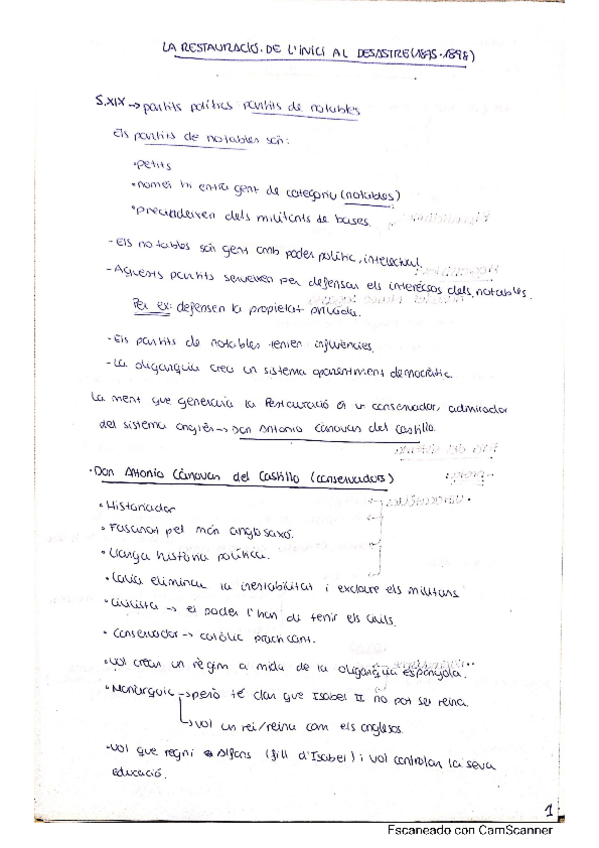 LA RESTAURACIÓ. DE L'INICI AL DESASTRE (1875-1898)
S.XIX → partits polítics partits de notables
Els partits de notables són:
• petits
• només hi entra gent de categoria (notables)
• prescindeixen dels militants de bases.
- Els notables són gent amb poder polític, intelectual.
- Aquests partits serveixen per defensar els interessos dels notables.
Per ex: defensen la propietat privada.
- Els partits de notables tenien influències.
- La oligarquia crea un sistema aparentment democràtic.
La ment que generaria la Restauració és un conservador, admirador
del sistema anglès → Don Antonio Cánovas del Castillo.
• Don Antonio Cánovas del Castillo (conservadors)
• Historiador
• Fascinat pel món anglosaxó.
• Llarga història política.
• Calia eliminar la inestabilitat i excloure els militars
• Civilista → el poder l'han de tenir els civils.
• Conservador → catòlic practicant.
• Vol crear un règim a mida de la oligarquia espanyola.
• Monàrquic → però té clar que Isabel II no pot ser reina.
↳ vol un rei/reina com els anglesos.
• Vol que regni Alfons (fill d'Isabel) i vol controlar la seva
educació.
1
Escaneado con CamScanner